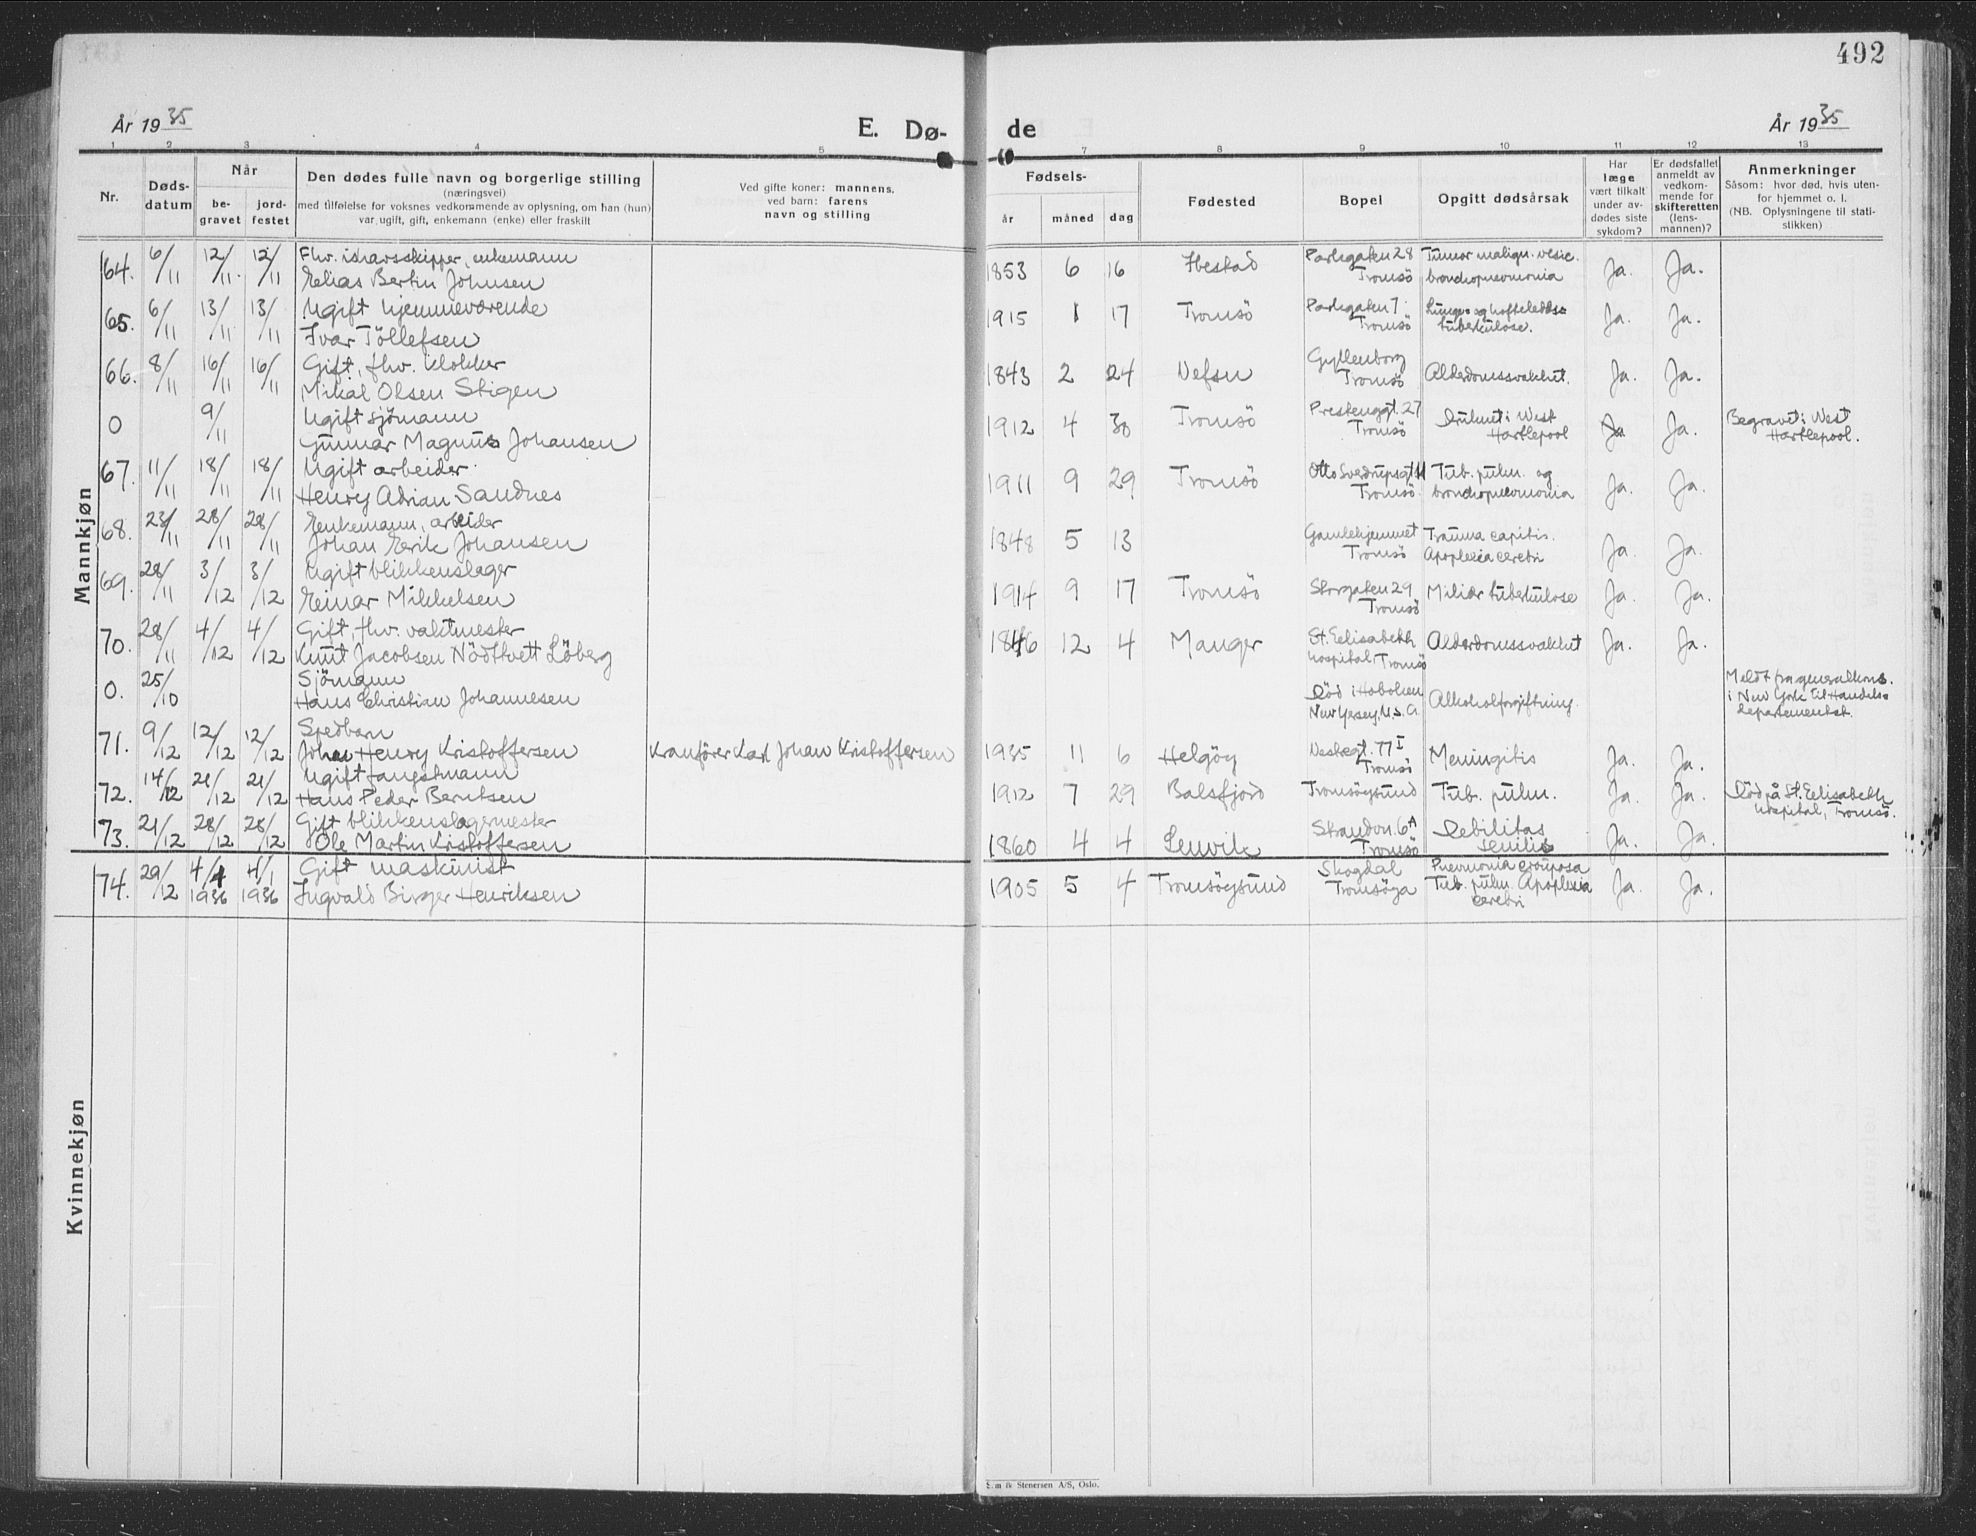 492
År 1935 E. Dø- de År 1935
1 2 3 4 5 7 8 9 10 11 12 13
Nr. Døds-datum Når be-gravet jord-festet Den dødes fulle navn og borgerlige stilling (næringsvei) med tilføielse for voksnes vedkommende av oplysning, om han (hun) var ugift, gift, enkemann (enke) eller fraskilt
Ved gifte koner: mannens, ved barn: farens navn og stilling
Fødsels- år måned dag Fødested Bopel Opgitt dødsårsak
Har læge vært tilkalt under av-dødes siste sykdom?
Er dødsfallet anmeldt av vedkom-mende for skifteretten (lens-mannen)?
Anmerkninger Såsom: hvor død, hvis uten-for hjemmet o. l. (NB. Oplysningene til stati-stikken)
Mannkjøn
64. 6/11 12/11. 12/11 Fhv. ishavsskipper, enkemann
Elias Bertin Johnsen 1853 6 16 Ibestad Parkgaten 28 Tromsö Tumor malign. vesic. bronchopneumonia Ja. Ja.
65. 6/11 13/11 13/11 Ugift hjemmeværende
Ivar Töllefsen 1915 1 17 Tromsö Parkgaten 7. Tromsö Lunge og hofteledds-tuberkulose. Ja. Ja.
66. 8/11 16/11 16/11 Gift, fhv. klokker
Mikal Olsen Stigen 1843 2 24 Vefsn Gyllenborg Tromsö Alderdomssvakhet. Ja. Ja.
0 9/11 Ugift sjömann
Gunnar Magnus Johansen 1912 4 30 Tromsö Prestenggt. 27 Tromsö Druknet i West Hartlepool Ja Ja. Begravet i West Hartlepool.
67. 11/11 18/11 18/11 Ugift arbeider
Henry Adrian Sandnes 1911 9 29 Tromsö Otto Sverdrupsgt 11 Tromsö. Tub. pulm. og bronchopneumonia Ja. Ja.
68. 23/11 28/11 28/11 Enkemann, arbeider
Johan Erik Johansen 1848 5 13 Gamlehjemmet Tromsö Trauma capitis. Apoplexia cerebri Ja. Ja.
69. 28/11 3/12 3/12 Ugift blikkenslager
Einar Mikkelsen 1914 9 17 Tromsö Storgaten 29 Tromsö Miliær tuberkulose Ja. Ja.
70. 28/11 4/12 4/12 Gift, fhv. vaktmester
Knut Jacobsen Nödtvett Löberg 1846 12 4 Manger St. Elisabeth hospital, Tromsö Alderdomssvakhet Ja. Ja.
0. 25/10 Sjömann
Hans Christian Johannesen Död i Hoboken New Yersey, U.S.A. Alkoholforgiftning. Meldt fra generalkons. i New York til Handels-departementet.
71. 9/12 12/12 12/12 Spedbarn
Johan Henry Kristoffersen Kranförer Karl Johan Kristoffersen 1935 11 6 Helgöy Vestregt. 77 I Tromsö Meningitis Ja. Ja.
72. 14/12 21/12 21/12 Ugift fangstmann
Hans Peder Berntsen 1912 7 29 Balsfjord Tromsöysund Tub. pulm. Ja. Ja. Död på St. Elisabeth hospital, Tromsö.
73. 21/12 28/12 28/12 Gift blikkenslagermester
Ole Martin Kristoffersen 1860 4 4 Lenvik Strandvn. 6A Tromsö Debilitas senilis Ja. Ja.
74. 29/12 4/1 1936 4/1 1936 Gift maskinist
Ingvald Birger Henriksen 1905 5 4 Tromsöysund Skogdal Tromsöya Pneumonia crouposa Tub. pulm. Apoplexia cerebri Ja. Ja.
Kvinnekjøn
m & Stenersen A/S, Oslo.